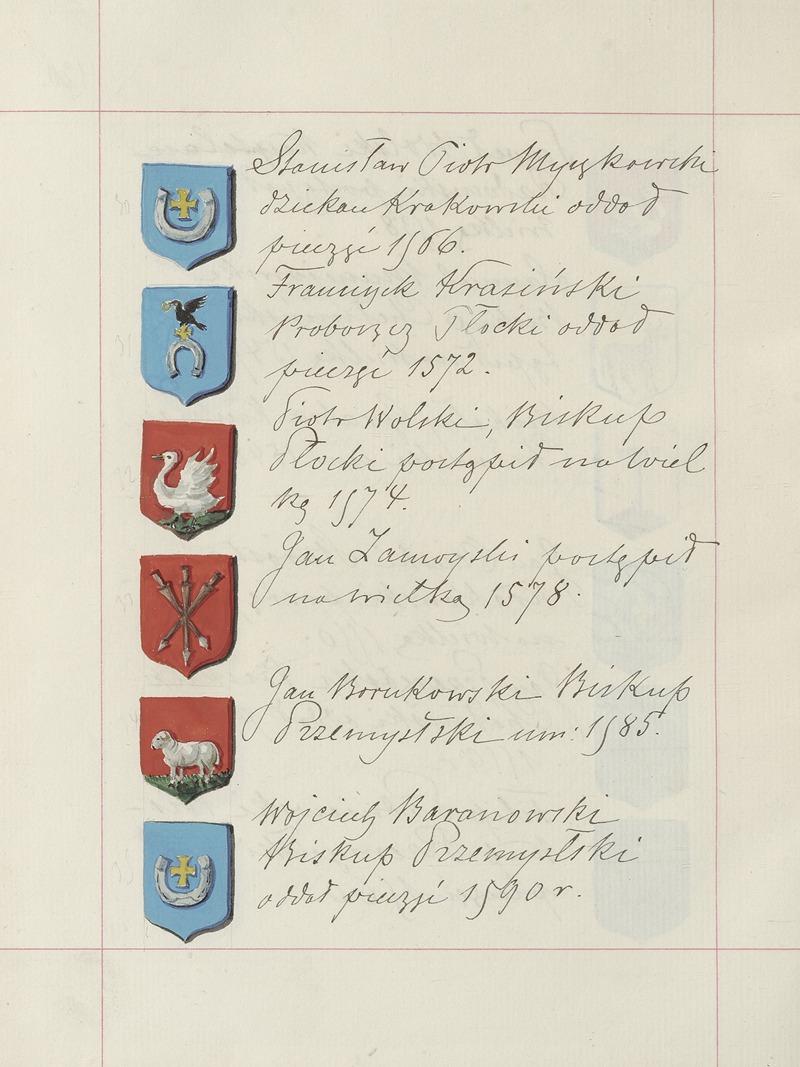 Stanisław Piotr Myszkowski
dziekan Krakowski oddał
pieczęć 1566.
Franciszek Krasiński
Proboszcz Płocki oddał
pieczęć 1572.
Piotr Wolski, Biskup
Płocki postąpił na wiel
ką 1574.
Jan Zamoyski postąpił
na wielką 1578.
Jan Borukowski Biskup
Przemyślski um: 1585.
Wojciech Baranowski
Biskup Przemyślski
oddał pieczęć 1590 r.